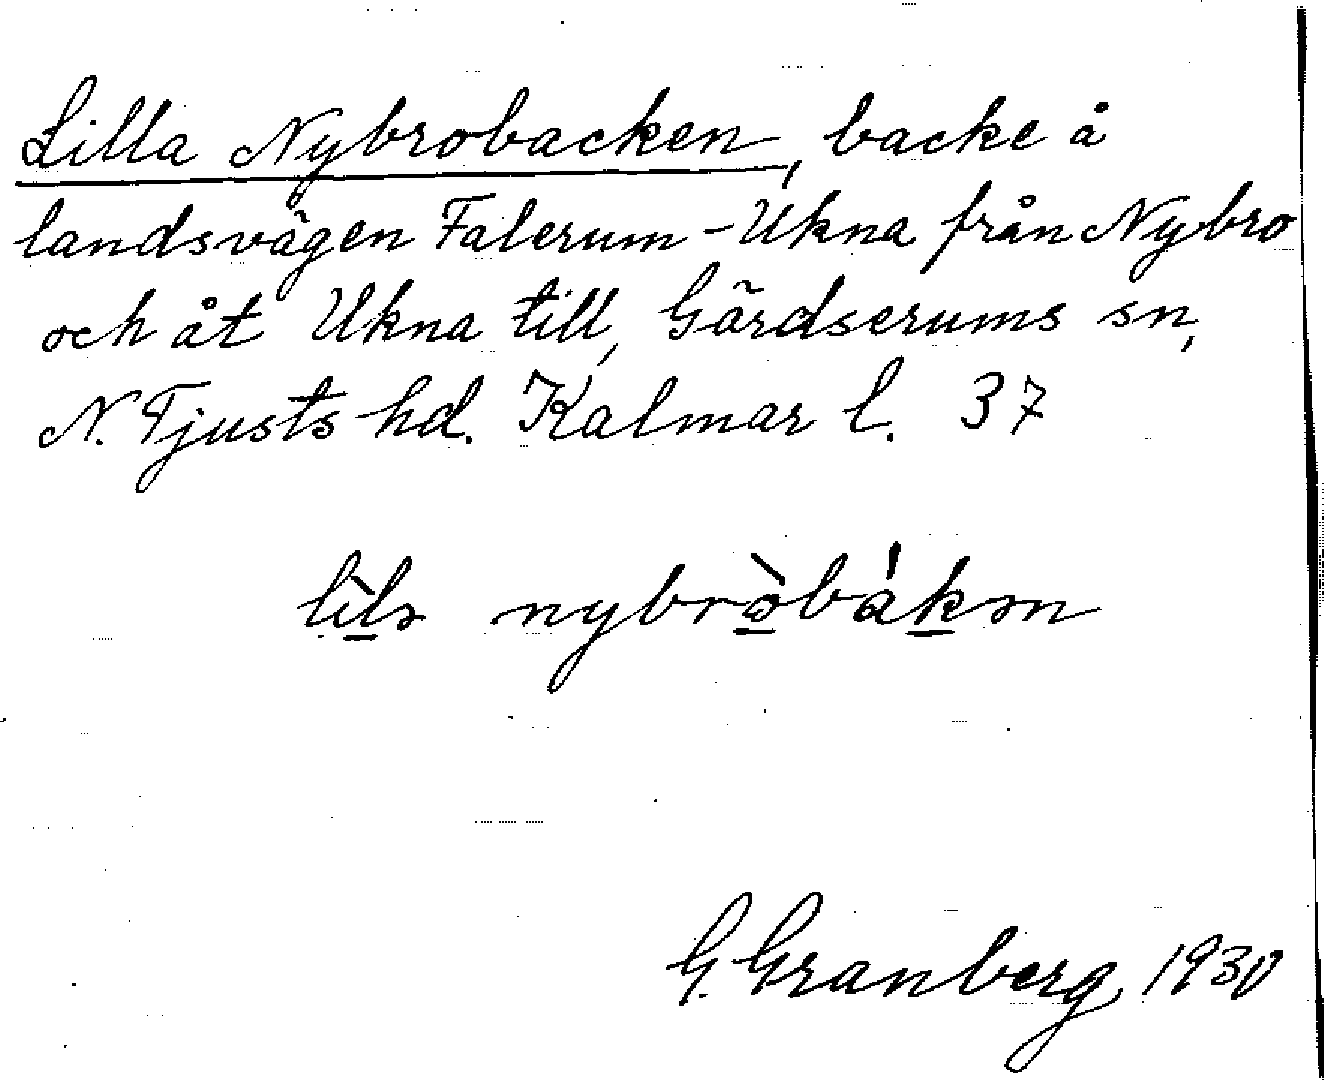 Lilla Nybrobacken, backe å
landsvägen Falerum - Ukna från Nybro
och åt Ukna till, Gärdserums sn,
N. Tjusts hd. Kalmar l. 37
nybròbákən
G. Granberg 1930